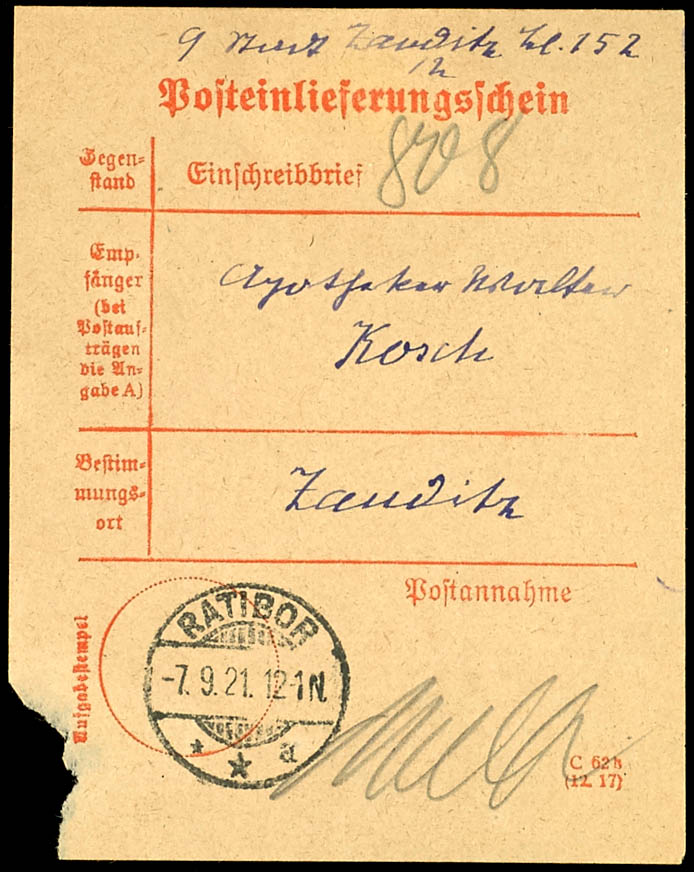 9 Zauditz Zl. 152
Posteinlieferungsschein
Gegen-
stand
Einschreibbrief 808
Emp-
fänger
(bei
Postauf-
trägen
die An-
gabe A)
Apotheker Walter
Kosch
Bestim-
mungs-
ort
Zauditz
Postannahme
Aufgabestempel
RATIBOR
-7. 9. 21. 12-1 N.
* * a
C 62 h
(12. 17)